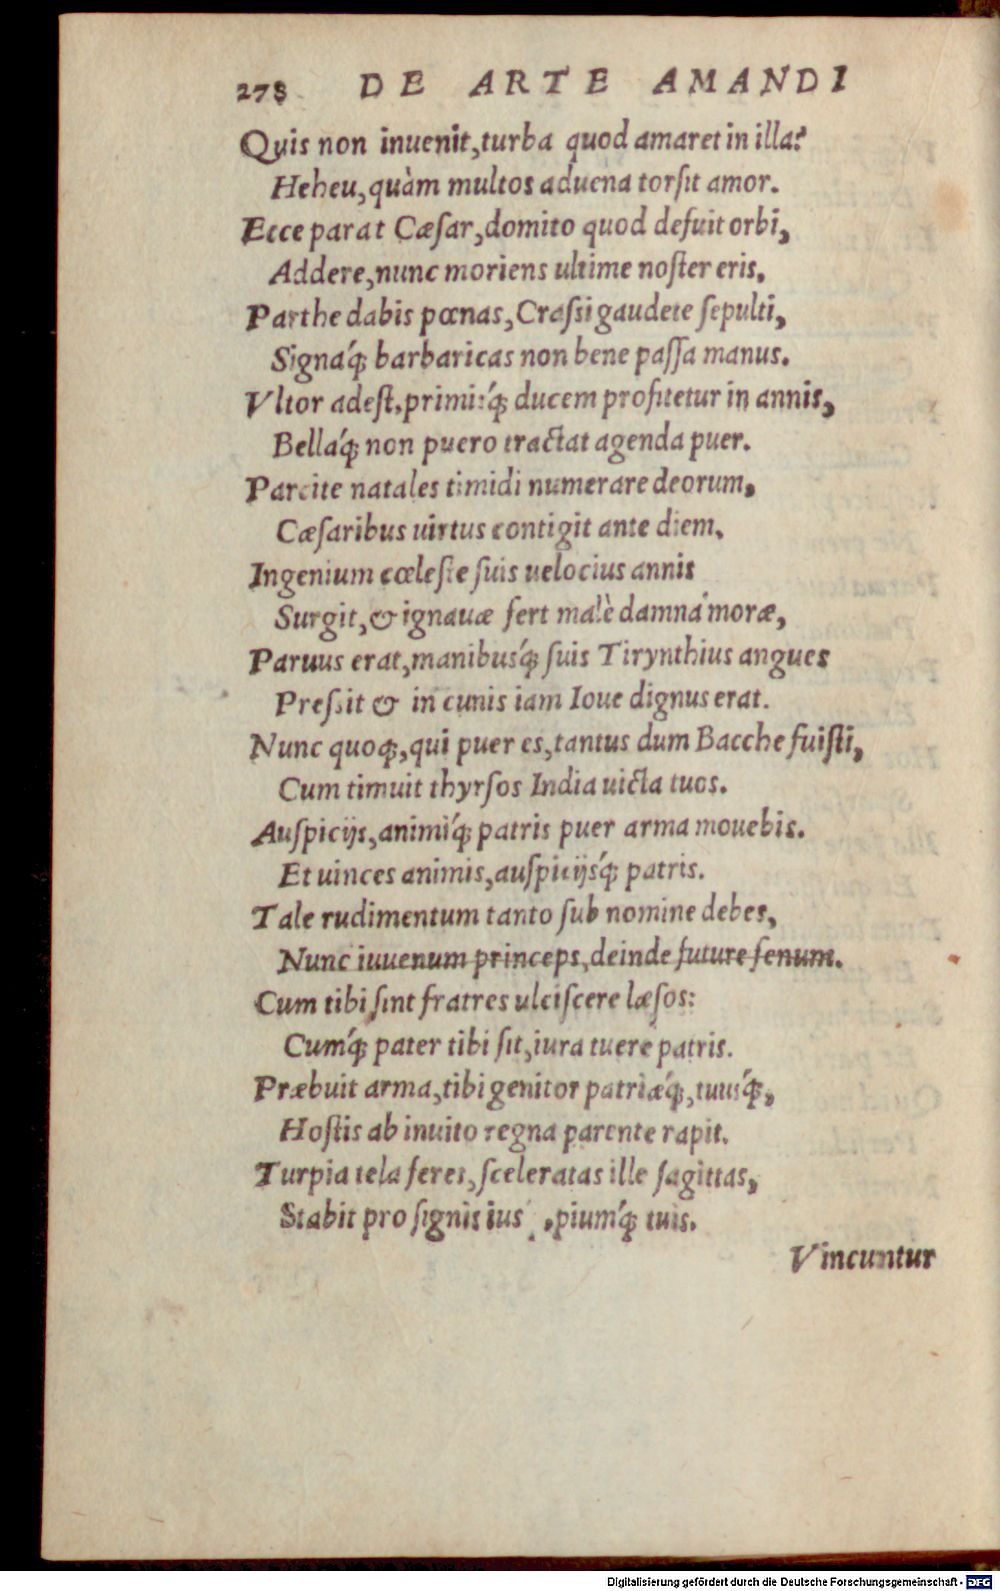 278 DE ARTE AMANDI
Quis non inuenit, turba quod amaret in illa?
Heheu, quàm multos aduena torſit amor.
Ecce parat Cæſar, domito quod defuit orbi,
Addere, nunc moriens ultime noſter eris.
Parthe dabis pœnas, Craſsi gaudete ſepulti,
Signáq́; barbaricas non bene paſſa manus.
Vltor adeſt, primisq́; ducem profitetur in annis,
Belláq́; non puero tractat agenda puer.
Parcite natales timidi numerare deorum,
Cæſaribus uirtus contigit ante diem.
Ingenium cœleſte ſuis uelocius annis
Surgit, & ignauæ fert malè damna moræ,
Paruus erat, manibusq́; ſuis Tirynthius angues
Preſsit & in cunis iam Ioue dignus erat.
Nunc quoq;, qui puer es, tantus dum Bacche fuiſti,
Cum timuit thyrſos India uicta tuos.
Auſpicijs, animiq́; patris puer arma mouebis.
Et uinces animis, auſpicijsq́; patris.
Tale rudimentum tanto ſub nomine debes,
Nunc iuuenum princeps, deinde future ſenum.
Cum tibi ſint fratres ulciſcere læſos:
Cumq́; pater tibi ſit, iura tuere patris.
Præbuit arma, tibi genitor patriæq́;, tuusq́;,
Hoſtis ab inuito regna parente rapit.
Turpia tela feres, ſceleratas ille ſagittas,
Stabit pro ſignis ius , piumq́; tuis.
Vincuntur
Digitalisierung gefördert durch die Deutsche Forschungsgemeinschaft - DFG